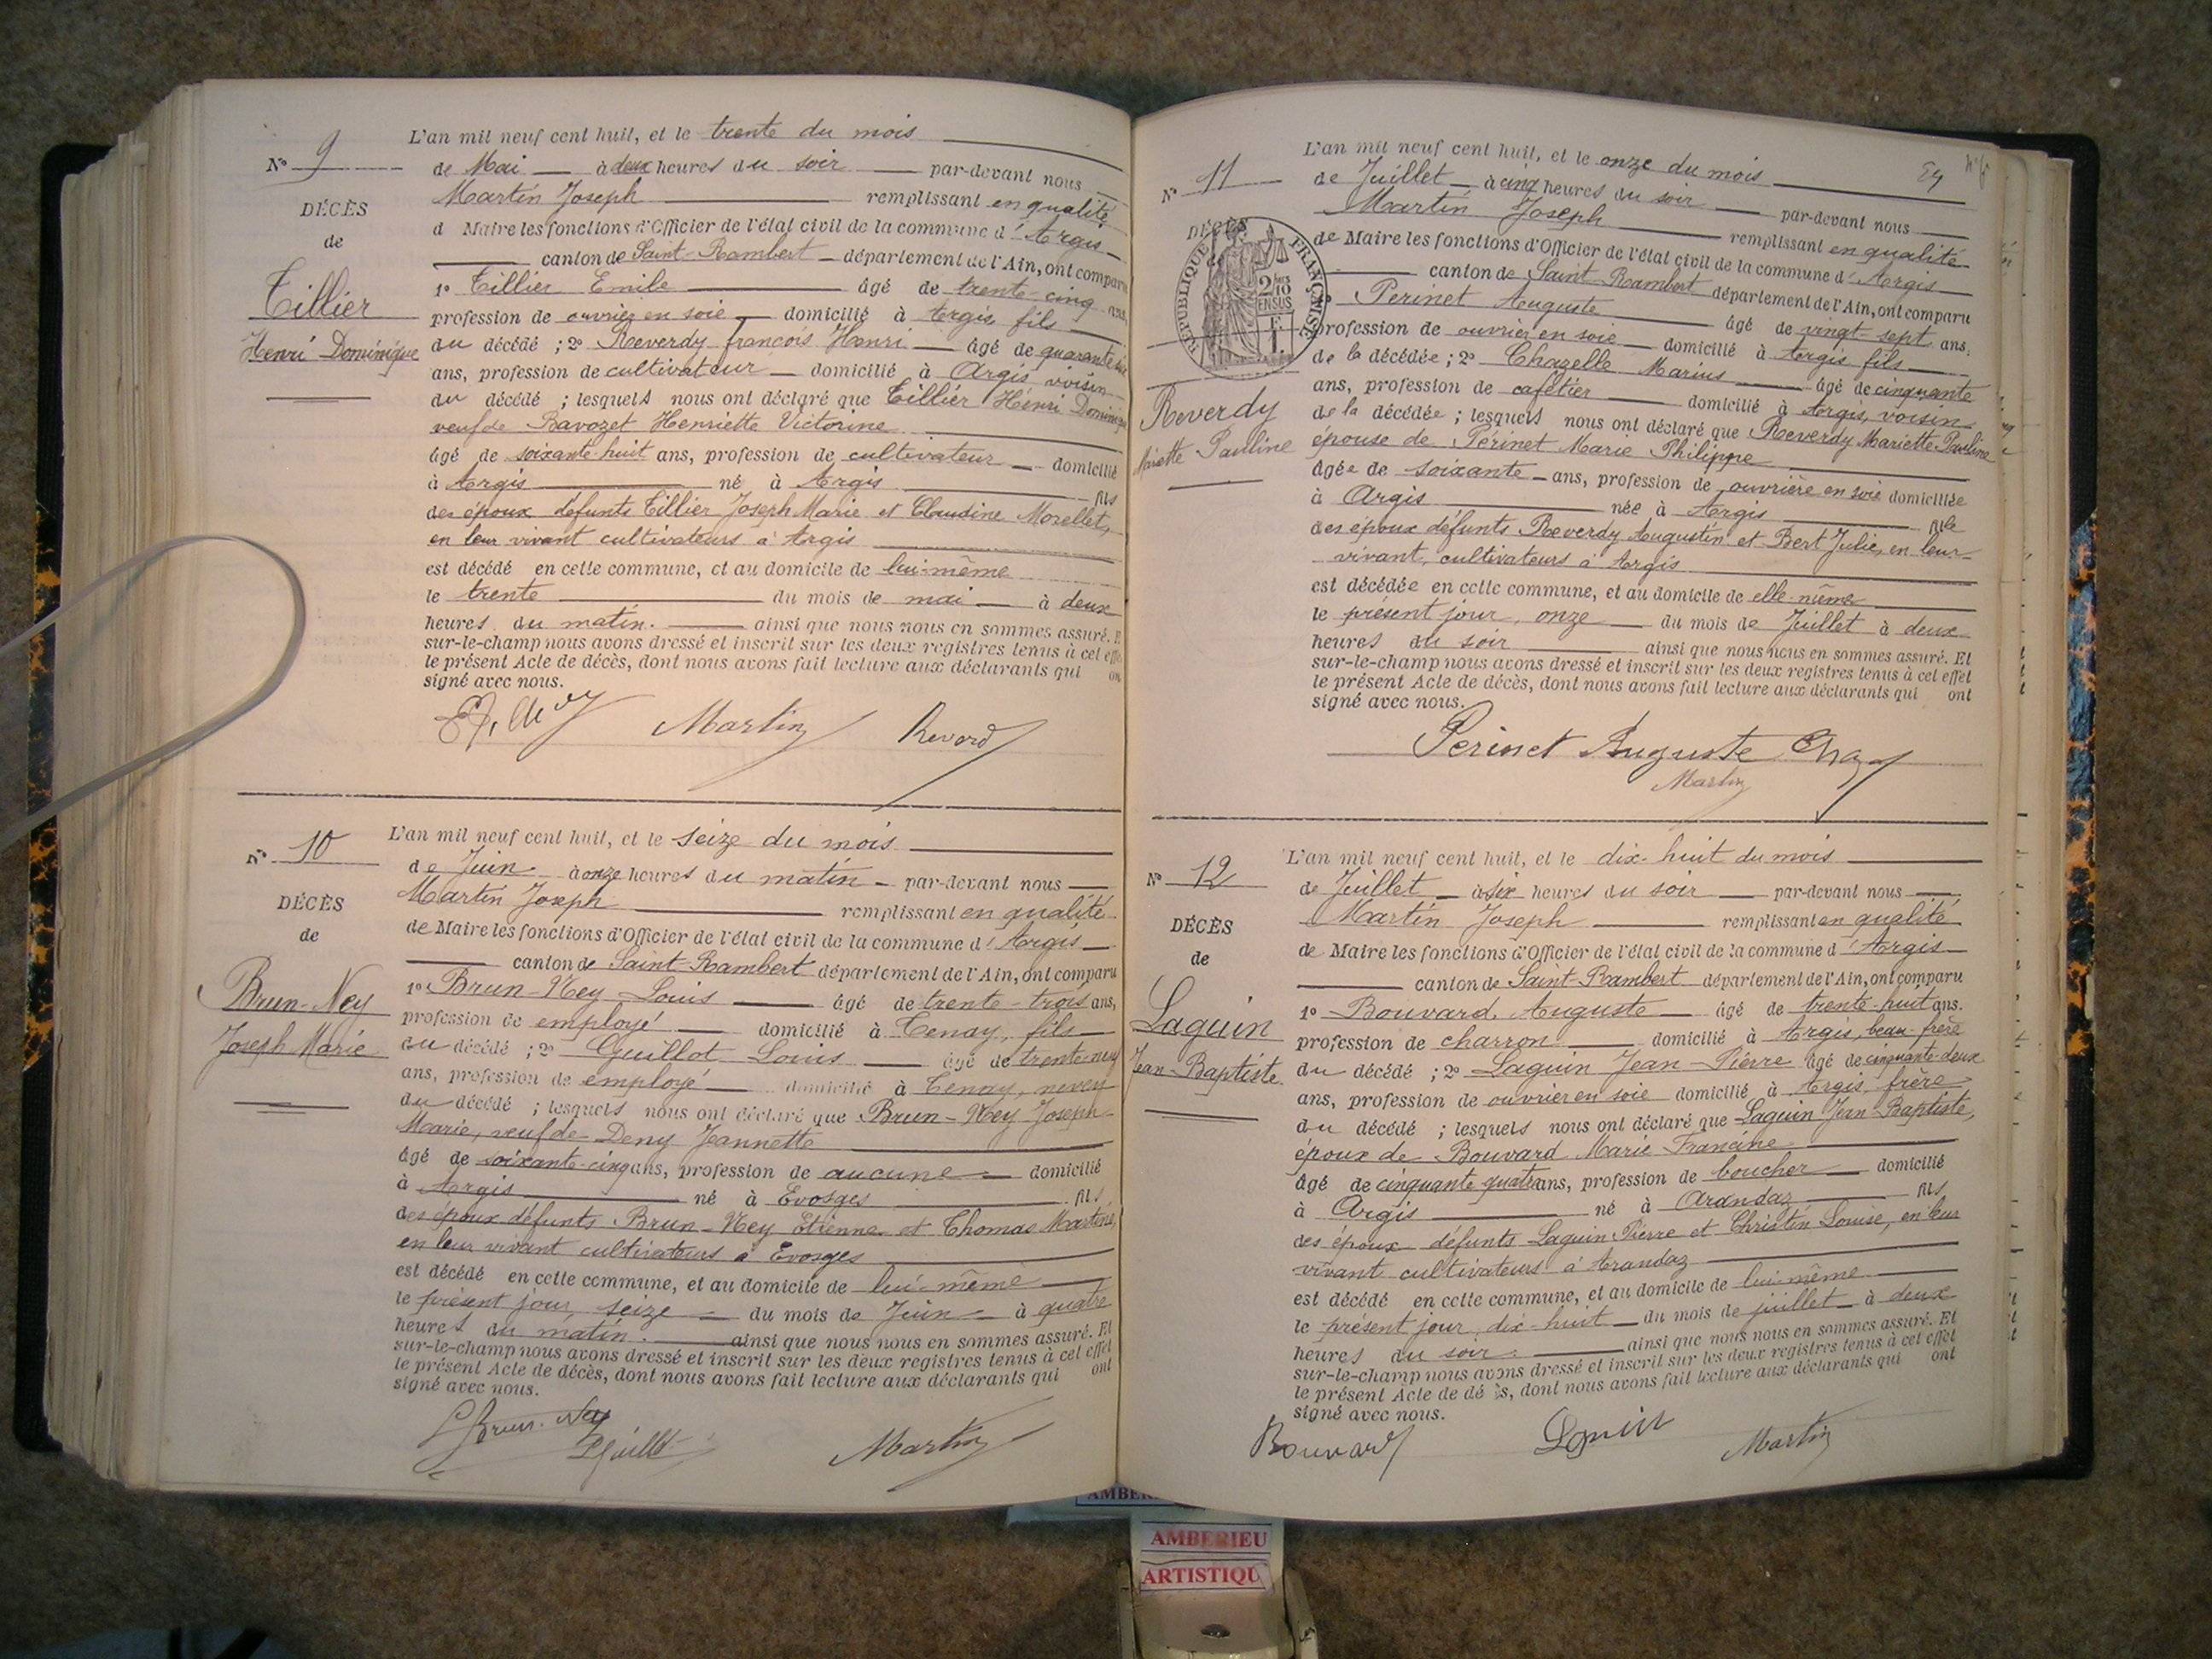 L'an mil neuf cent huit, et le trente du mois
N° 9
de Mai à deux heures du soir par-devant nous
Martin Joseph remplissant en qualité
DÉCÈS
d Maire les fonctions d'Officier de l'état civil de la commune d'Argis
de
canton de Saint-Rambert département de l'Ain, ont comparu
1° Tillier Emile âgé de trente-cinq ans,
Tillier
profession de ouvrier en soie domicilié à Argis, fils
Henri Dominique
du décédé ; 2° Reverdy françois Henri âgé de quarante
ans, profession de cultivateur domicilié à Argis, voisin
du décédé ; lesquels nous ont déclaré que Tillier Henri Dominique
veuf de Ravozet Henriette Victorine
âgé de soixante-huit ans, profession de cultivateur domicilié
à Argis né à Argis fils
des époux défunts Tillier Joseph Marie et Claudine Morellet,
en leur vivant cultivateurs à Argis
est décédé en cette commune, et au domicile de lui-même
le trente du mois de mai à deux
heures du matin. ainsi que nous nous en sommes assuré. E
sur-le-champ nous avons dressé et inscrit sur les deux registres tenus à cet effe
le présent Acte de décès, dont nous avons fait lecture aux déclarants qui on
signé avec nous.
Martin Reverd
L'an mil neuf cent huit, et le seize du mois
N° 10
de Juin à onze heures du matin par-devant nous
Martin Joseph remplissant en qualité
DÉCÈS
de Maire les fonctions d'Officier de l'état civil de la commune d'Argis
de
canton de Saint-Rambert département de l'Ain, ont comparu
1° Brun-Ney Louis âgé de trente-trois ans,
Brun-Ney
profession de employé domicilié à Tenay, fils
Joseph Marie
du décédé ; 2° Guillot Louis âgé de trente-neuf
ans, profession de employé domicilié à Tenay, neveu
du décédé ; lesquels nous ont déclaré que Brun-Ney Joseph
Marie, veuf de Deny Jeannette
âgé de soixante-cinq ans, profession de aucune domicilié
à Argis né à Evosges fils
des époux défunts Brun-Ney Etienne et Thomas Martine,
en leur vivant cultivateurs à Evosges
est décédé en cette commune, et au domicile de lui-même
le présent jour, seize du mois de Juin à quatre
heures du matin. ainsi que nous nous en sommes assuré. Et
sur-le-champ nous avons dressé et inscrit sur les deux registres tenus à cet effet
le présent Acte de décès, dont nous avons fait lecture aux déclarants qui ont
signé avec nous.
L Brun-Ney
Martin
L'an mil neuf cent huit, et le onze du mois
N° 11
de Juillet à cinq heures du soir par-devant nous
Martin Joseph remplissant en qualité
DÉCÈS
RÉPUBLIQUE FRANÇAISE
de Maire les fonctions d'Officier de l'état civil de la commune d'Argis
canton de Saint-Rambert département de l'Ain, ont comparu
Perinet Auguste âgé de vingt-sept ans,
profession de ouvrier en soie domicilié à Argis, fils
de la décédée ; 2° Chazelle Marius âgé de cinquante
ans, profession de cafetier domicilié à Argis, voisin
Reverdy
de la décédée ; lesquels nous ont déclaré que Reverdy Mariette Pauline
Mariette Pauline
épouse de Périnet Marie Philippe
âgée de soixante ans, profession de ouvrière en soie domiciliée
à Argis née à Argis fille
des époux défunts Reverdy Augustin et Bert Julie, en leur
vivant, cultivateurs à Argis
est décédée en cette commune, et au domicile de elle-même
le présent jour, onze du mois de Juillet à deux
heures du soir ainsi que nous nous en sommes assuré. Et
sur-le-champ nous avons dressé et inscrit sur les deux registres tenus à cet effet
le présent Acte de décès, dont nous avons fait lecture aux déclarants qui ont
signé avec nous.
Perinet Auguste Chaz
Martin
L'an mil neuf cent huit, et le dix-huit du mois
N° 12
de Juillet à six heures du soir par-devant nous
Martin Joseph remplissant en qualité
DÉCÈS
de Maire les fonctions d'Officier de l'état civil de la commune d'Argis
de
canton de Saint-Rambert département de l'Ain, ont comparu
1° Bouvard Auguste âgé de trente-huit ans.
Laguin
profession de charron domicilié à Argis, beau-frère
Jean-Baptiste
du décédé ; 2° Laguin Jean-Pierre âgé de cinquante-deux
ans, profession de ouvrier en soie domicilié à Argis, frère
du décédé ; lesquels nous ont déclaré que Laguin Jean Baptiste,
époux de Bouvard Marie Francine
âgé de cinquante quatre ans, profession de boucher domicilié
à Argis né à Arandaz fils
des époux défunts Laguin Pierre et Christin Louise, en leur
vivant cultivateurs à Arandaz
est décédé en cette commune, et au domicile de lui-même
le présent jour, dix-huit du mois de juillet à deux
heures du soir. ainsi que nous nous en sommes assuré. Et
sur-le-champ nous avons dressé et inscrit sur les deux registres tenus à cet effet
le présent Acte de décès, dont nous avons fait lecture aux déclarants qui ont
signé avec nous.
Bouvard Martin
AMBERIEU
ARTISTIQU